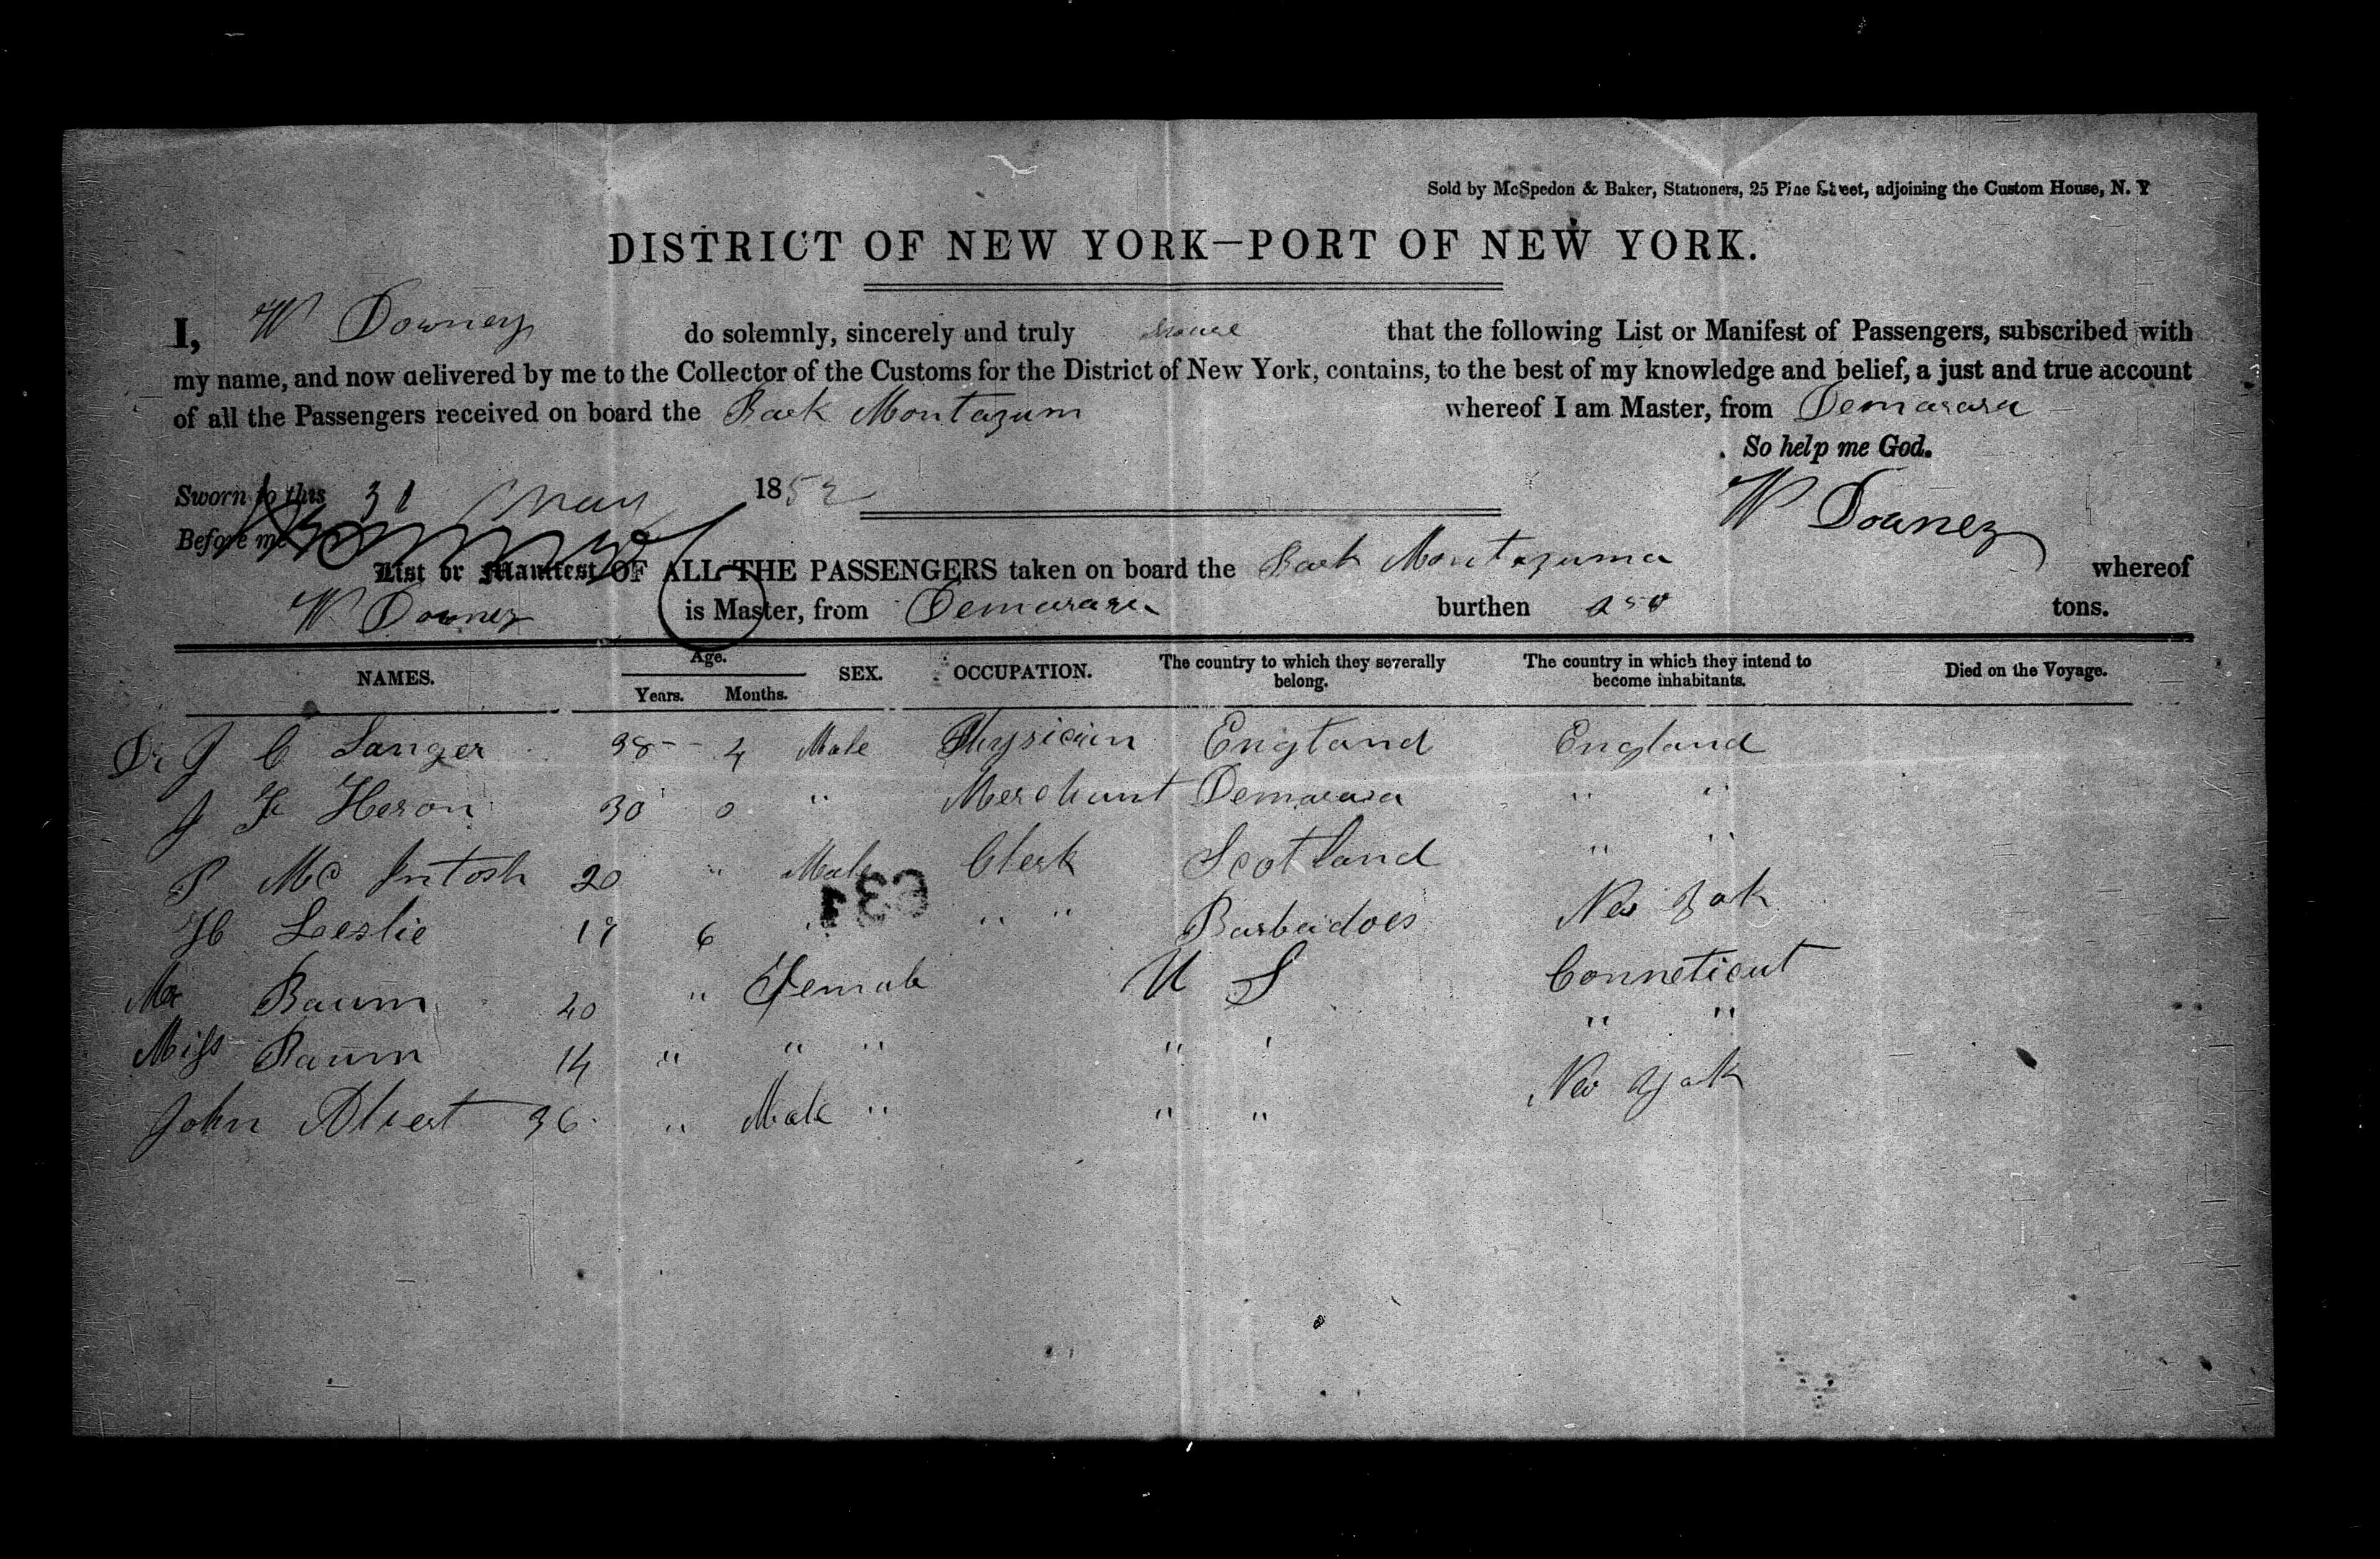 Sold by McSpedon & Baker, Stationers, 25 Pine Street, adjoining the Custom House, N. Y
DISTRICT OF NEW YORK—PORT OF NEW YORK.
I, W Downey do solemnly, sincerely and truly that the following List or Manifest of Passengers, subscribed with
my name, and now delivered by me to the Collector of the Customs for the District of New York, contains, to the best of my knowledge and belief, a just and true account
of all the Passengers received on board the Bark Montazum whereof I am Master, from Demarara
So help me God.
Sworn to this 31 May 1852
W Downey
Before me
List or Manifest OF ALL THE PASSENGERS taken on board the Bark Montazuma whereof
W Downey is Master, from Demarara burthen 250 tons.
NAMES. Age. Years. Months. SEX. OCCUPATION. The country to which they severally belong. The country in which they intend to become inhabitants. Died on the Voyage.
Dr J C Sanger 38 4 Male Physician England England
J F Heron 30 0 " Merchant Demarara " "
P Mc Intosh 20 " Male Clerk Scotland " "
631
H Leslie 19 6 " " " Barbadoes New York
Baum 20 " Female U S Conneticut
Miss Baum 14 " " " " " " "
John Alvert 36 " Male " " " New York